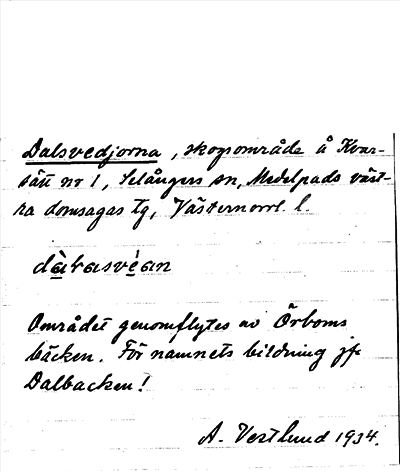 Dalsvedjorna, skogsområde å Kvar-
sätt nr 1, Selångers sn, Medelpads väst-
ra domsagas tg, Västernorrl. l.
området genomflytes av Örboms
bäcken. För namnets bildning jfr
Dalbacken!
A. Vestlund 1934.